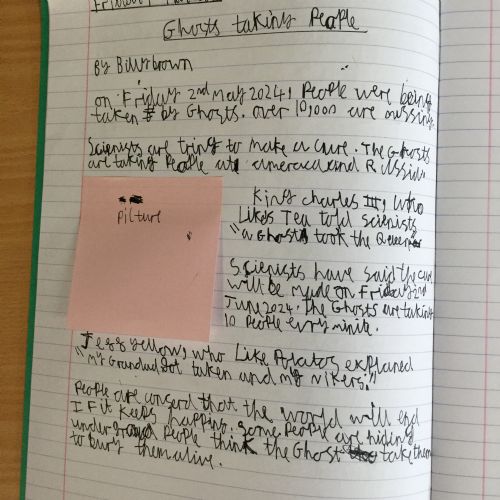 Ghosts taking People
By Billy brown
on Friday 2nd May 2024, People were being
taken by Ghosts. over 10,000 are missing
Scienists are tring to make a cure. The Ghosts
are taking People at ameraca and Russia.
Picture
King charles III, who
Likes Tea told scienists
"a Ghost took the Queen"
Scienists have said the cure
will be made on Friday 2nd
June 2024. The Ghosts are taking
10 People evry minite.
Jeff yellow, who Like Potatos explained
"My Grandad got taken and my nikers."
People are conserd that the world will end
If it keeps happing. Some People are hiding
under ground People think the Ghost take them
to bury them alive.